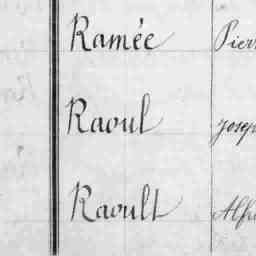 Ramée Pierr
Raoul Josep
Raoult Alfr